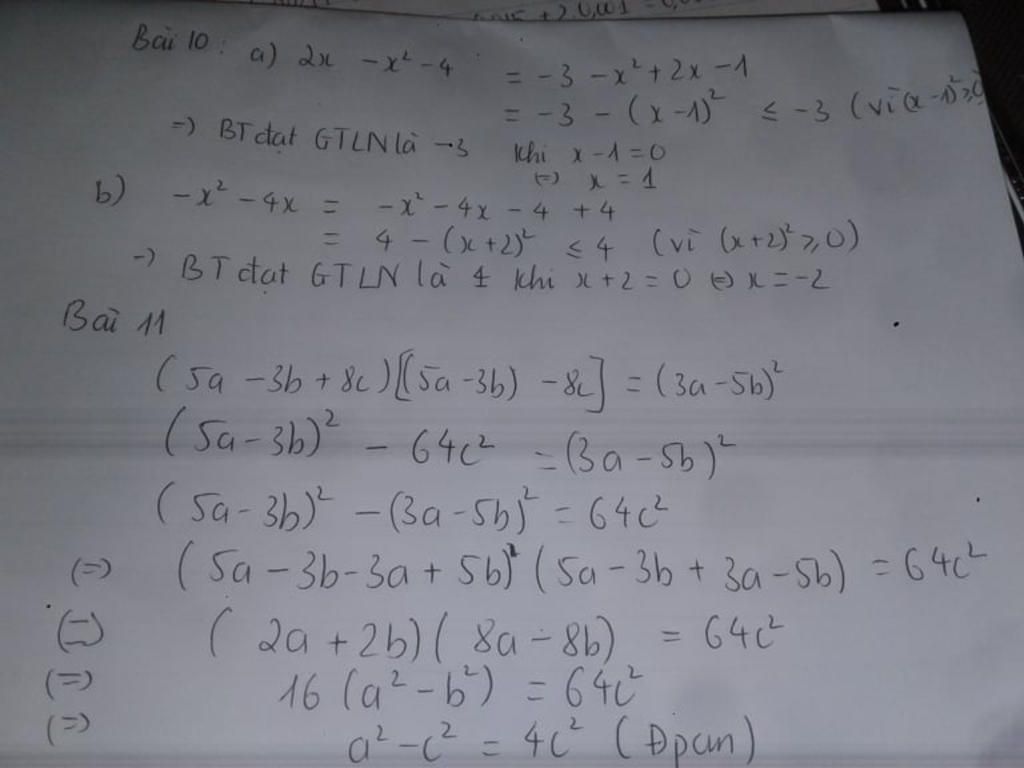 Bài 10: a) 2x - x² - 4 = -3 - x² + 2x - 1
= -3 - (x-1)² ≤ -3 (vì (x-1)² ≥ 0
=) BT đạt GTLN là -3 khi x - 1 = 0
(=) x = 1
b) -x² - 4x = -x² - 4x - 4 + 4
= 4 - (x+2)² ≤ 4 (vì (x+2)² ≥ 0)
-) BT đạt GTLN là 4 khi x + 2 = 0 (=) x = -2
Bài 11
(5a - 3b + 8c)[(5a - 3b) - 8c] = (3a - 5b)²
(5a - 3b)² - 64c² = (3a - 5b)²
(5a - 3b)² - (3a - 5b)² = 64c²
(=) (5a - 3b - 3a + 5b)(5a - 3b + 3a - 5b) = 64c²
(=) (2a + 2b)(8a - 8b) = 64c²
(=) 16(a² - b²) = 64c²
(=) a² - c² = 4c² (Đpcm)